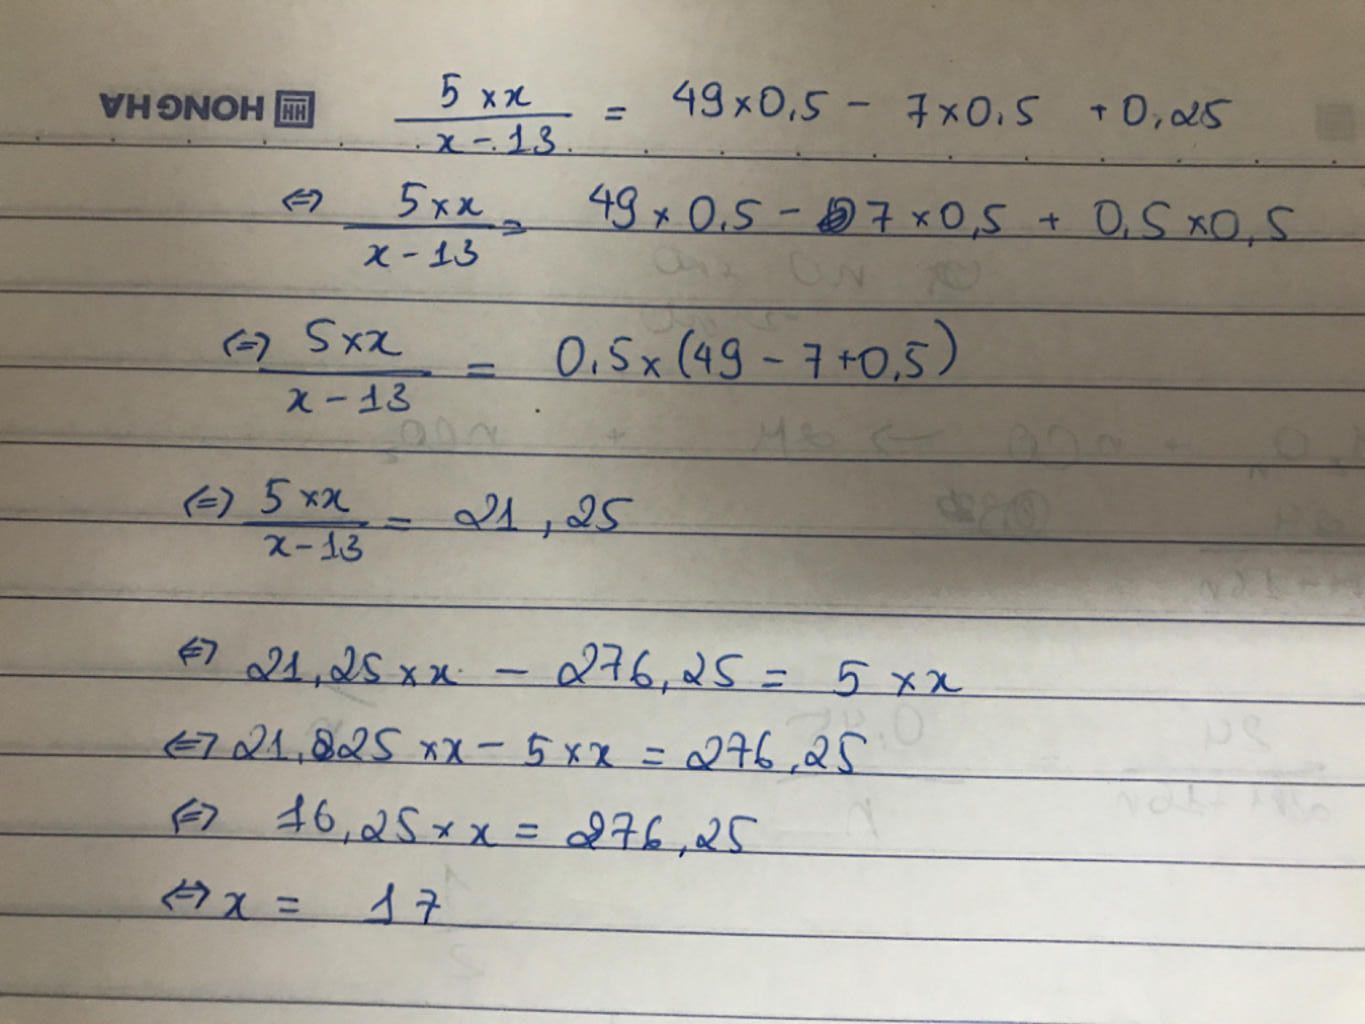 HONG HA
5 × x / x - 13 = 49 × 0,5 - 7 × 0,5 + 0,25
⇔ 5 × x / x - 13 = 49 × 0,5 - 7 × 0,5 + 0,5 × 0,5
⇔ 5 × x / x - 13 = 0,5 × (49 - 7 + 0,5)
⇔ 5 × x / x - 13 = 21,25
⇔ 21,25 × x - 276,25 = 5 × x
⇔ 21,25 × x - 5 × x = 276,25
⇔ 16,25 × x = 276,25
⇔ x = 17